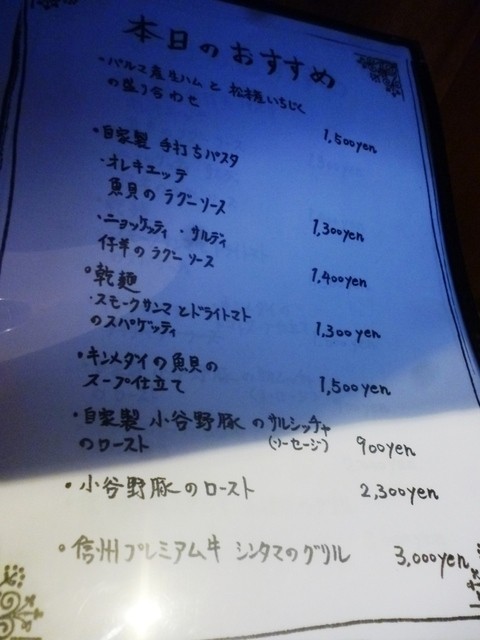 本日のおすすめ
・パルマ産生ハムと 松本産いちじく
の盛り合わせ
1,500yen
・自家製 手打ちパスタ
・オレキエッテ
魚貝のラグーソース
1,300yen
・ニョッケッティ・サルディ
仔羊のラグーソース
1,400yen
・乾麺
・スモークサンマとドライトマト
のスパゲッティ
1,300yen
・キンメダイの魚貝の
スープ仕立て
1,500yen
・自家製 小谷野豚のサルシッチャ
のロースト (ソーセージ) 900yen
・小谷野豚のロースト 2,300yen
・信州プレミアム牛 シンタマのグリル 3,000yen